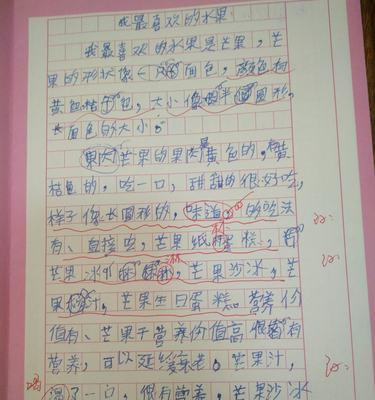 我最喜欢的水果
我最喜欢的水果是芒果，芒
果的形状像 面包，颜色有
黄色桔 色，大小像 半圆形，
长面包的大小。
果肉芒果的果肉是黄色的，黄
桔色的，吃一口，甜甜的很好吃，
样子像长圆形的，味道 的吃法
有、直接吃，芒果纸杯蛋糕，
芒果冰 淋，芒果沙冰，芒
果 汁，芒果生日蛋糕。营养价
值有、芒果干营养价值高很 有
营养，可以延缓衰老。芒果汁，
喝
了一口，很有营养，芒果沙冰